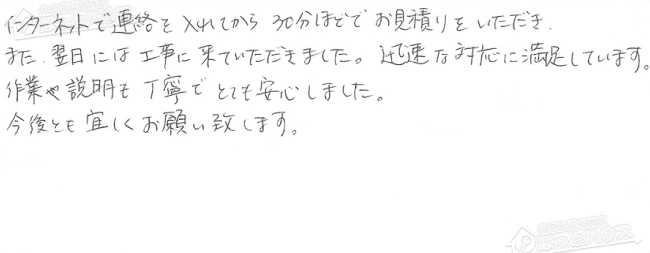 インターネットで連絡を入れてから30分ほどでお見積りをいただき、
また、翌日には工事に来ていただきました。迅速な対応に満足しています。
作業や説明も丁寧でとても安心しました。
今後とも宜しくお願い致します。